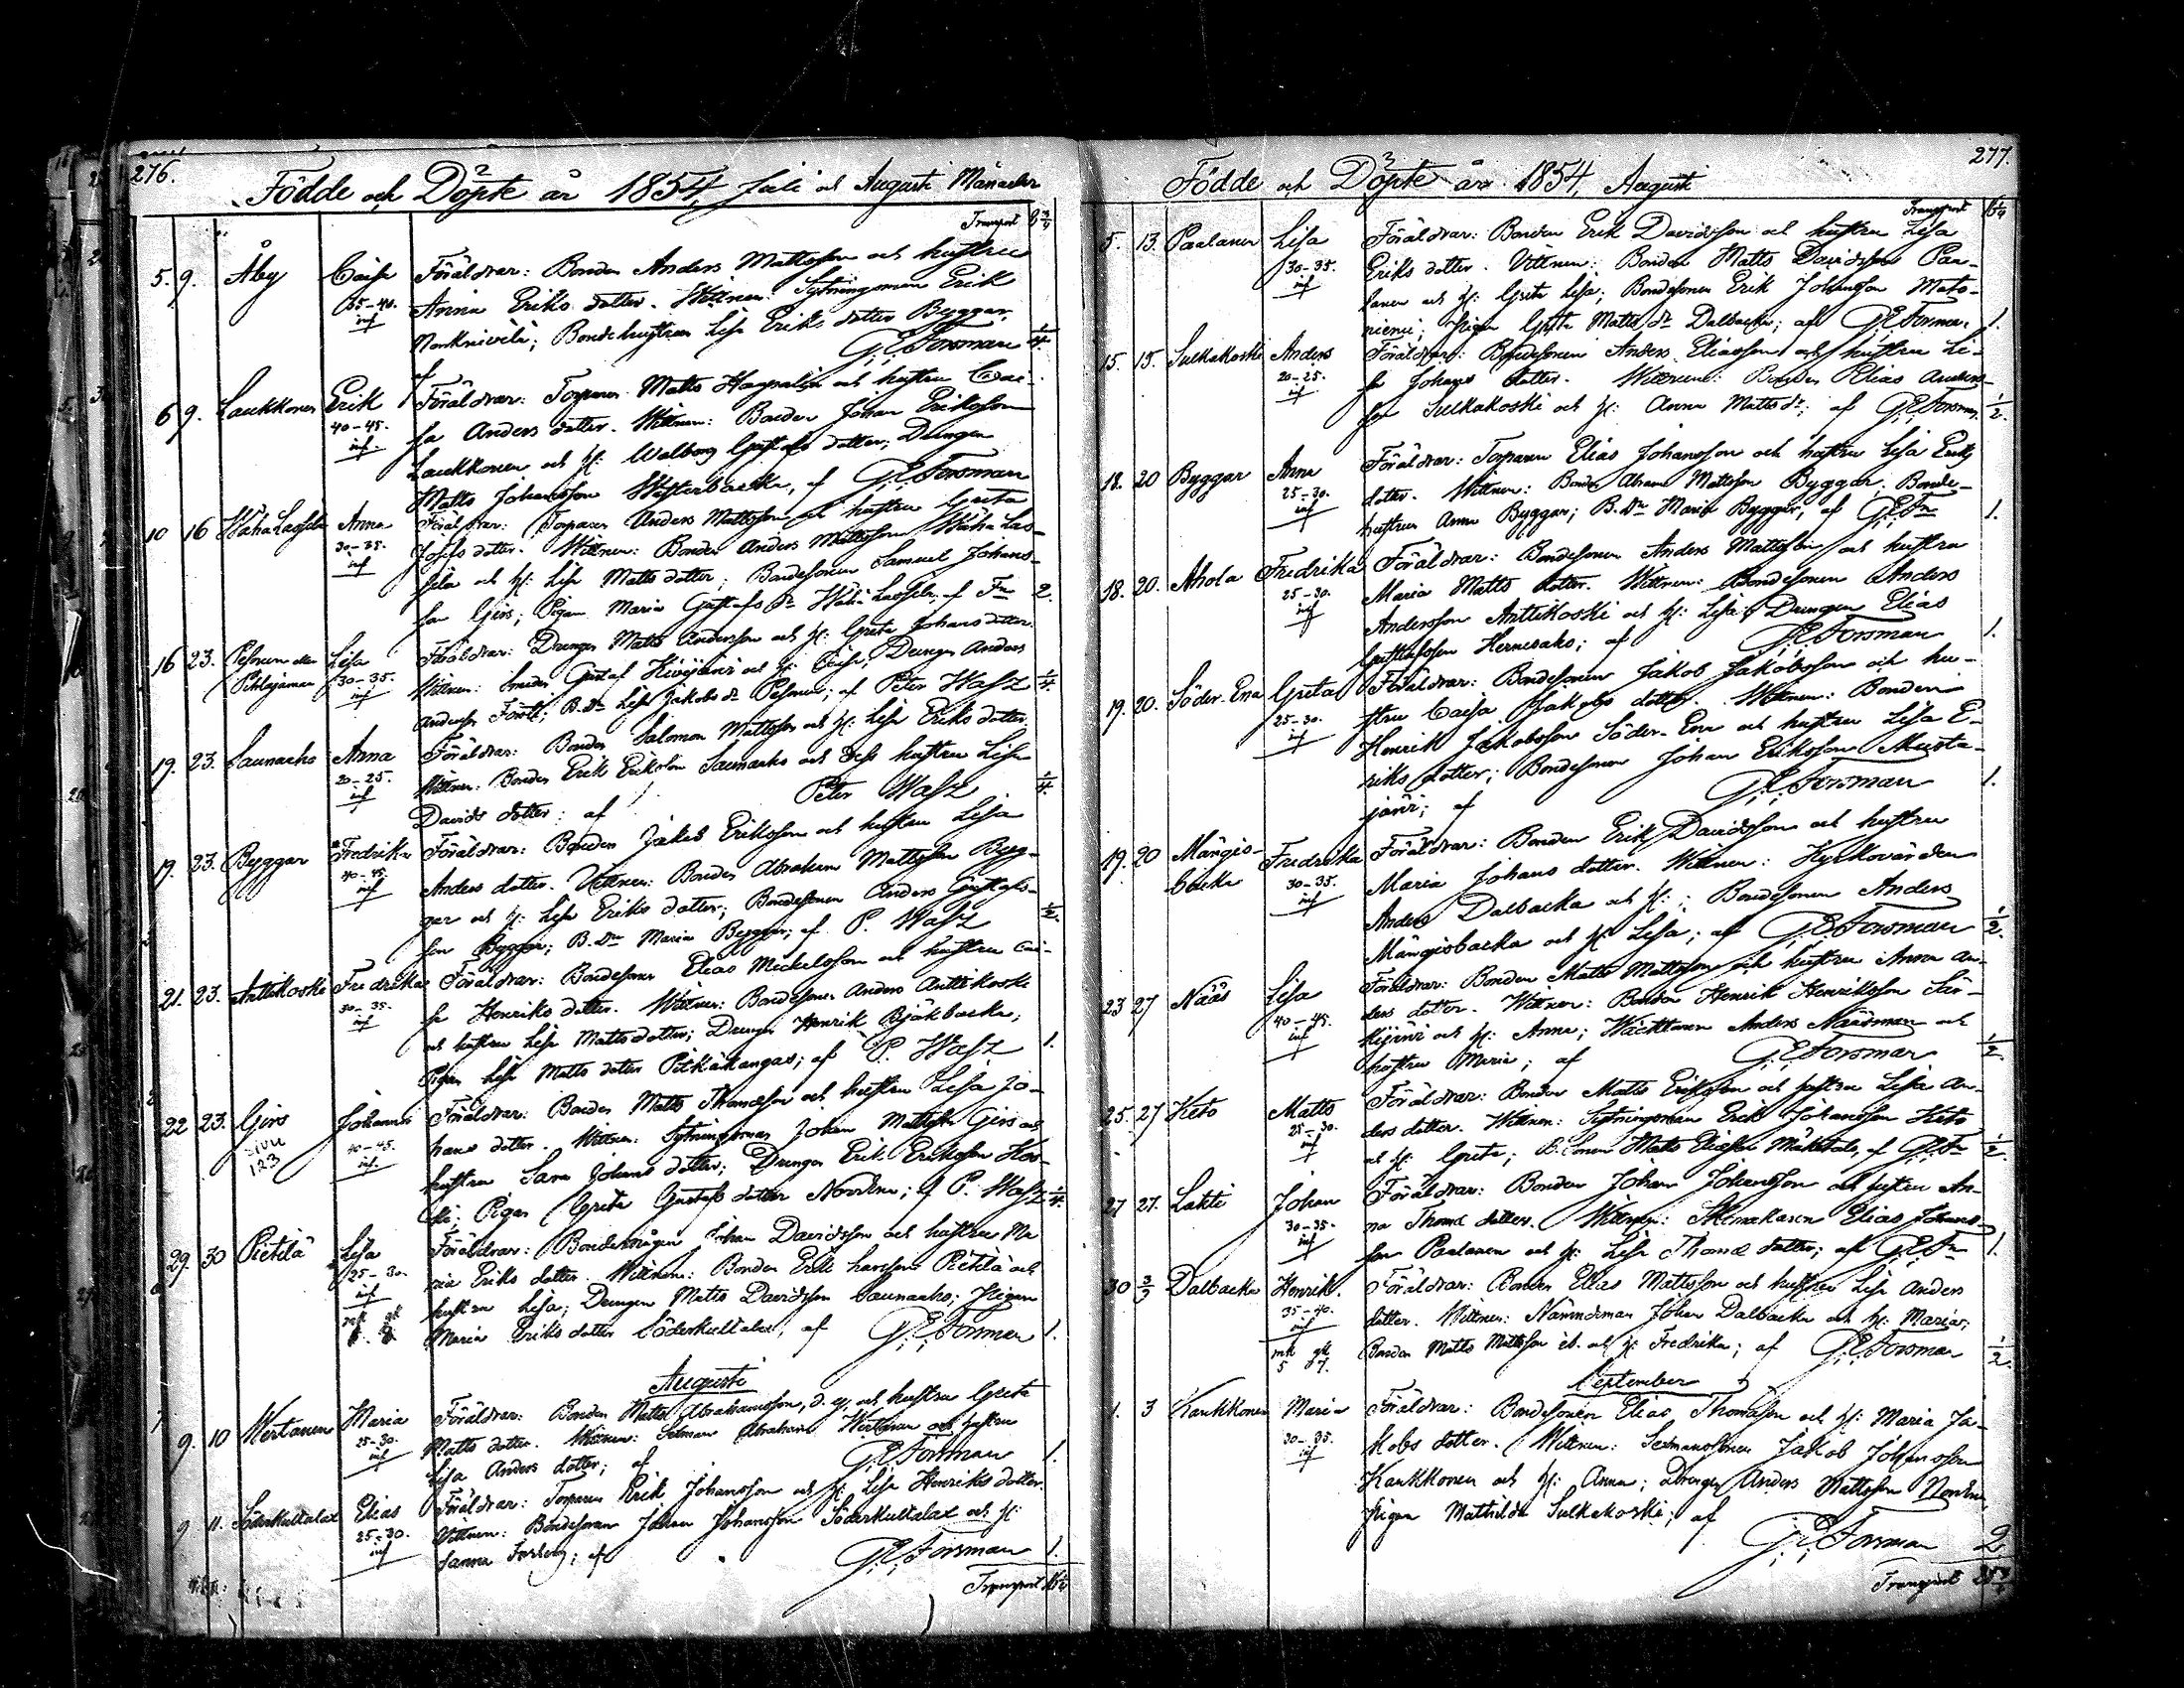 276.
Födde och Döpte år 1854, Juli och Augusti Månader
Transport 8 3/4
5. 9. Åby Caisa Föräldrar: Bonden Anders Mattsson och hustrun
35-40. Anna Eriks dotter. Wittnen: Sytningsman Erik
inf
Bondehustrun Lisa Eriks dotter Byggar,
af G:E:Forsman 1/4.
6 9. Laukkonen Erik Föräldrar: Torparen Matts och hustrun Cai-
40-45. sa Anders dotter. Wittnen: Bonden Johan Eriksson
inf. Laukkonen och h: Walborg Gustafs dotter; Drengen
Matts Johansson Westerbacka, af G:E:Forsman
10 16 Wähä Lassila Anna Föräldrar: Torparen Anders Mattsson och hustrun Greta
30-35. Josefs dotter. Wittnen: Bonden Anders Mattsson Wähä Las-
inf sila och h: Lisa Matts dotter; Bondesonen Samuel Johans-
son Girs; Pigan Maria Gustafs dr Wähä Lassila, af Fn 2.
16 23. Pesonen Lisa Föräldrar: Drengen Matts Andersson och h: Greta Johans dotter.
30-35. Wittnen: Smeden Gustaf Kivijärvi och h: Caisa; Drengen Anders
inf Andersson B.dr Lisa Jakobs dr Pesonen; af Peter Wasz 1/4.
19. 23. Saunaaho Anna Föräldrar: Bonden Salomon Mattsson och h: Lisa Eriks dotter.
20-25. Wittnen: Bonden Erik Eriksson Saunaaho och dess hustru Lisa
inf Davids dotter; af Peter Wasz 1/4.
19. 23. Byggar Fredrika Föräldrar: Bonden Jakob Eriksson och hustrun Lisa
40-45. Anders dotter. Wittnen: Bonden Abraham Mattsson Byg-
inf gar och h: Lisa Eriks dotter; Bondesonen Anders Gustafs-
son Byggar; B.Dr Maria Byggar; af P. Wasz 1/2.
21. 23. Anttikoski Fredrika Föräldrar: Bondesonen Elias Mickelsson och hustrun Cai-
30-35. sa Henriks dotter. Wittnen: Bondesonen Anders Anttikoski
inf och hustrun Lisa Matts dotter; Drengen Henrik Björkbacka;
Pigan Lisa Matts dotter Pitkäkangas; af P. Wasz 1.
22 23. Girs Johannes Föräldrar: Bonden Matts Thomasson och hustrun Lisa Jo-
123 40-45. hans dotter. Wittnen: Sytningsman Johan Mattsson Girs och
inf. hustrun Sara Johans dotter; Drengen Erik Eriksson
Pigan Greta Gustafs dotter Norrena; af P. Wasz 1/4.
29. 30 Pietilä Lisa Föräldrar: Bondemågen Johan Davidsson och hustrun Ma
25-30. ria Eriks dotter. Wittnen: Bonden Erik Pietilä och
inf hustrun Lisa; Drengen Matts Davidsson Saunaaho; Pigan
Maria Eriks dotter Söderkultalax, af G:E:Forsman 1.
Augusti
9. 10 Wertanen Maria Föräldrar: Bonden Matts Abrahamsson, d. y. och hustrun Greta
25-30. Matts dotter. Wittnen: Abraham Wertanen och hustrun
inf Lisa Anders dotter; af G:E:Forsman 1.
9 11. Söderkultalax Elias Föräldrar: Torparen Erik Johansson och h: Lisa Henriks dotter
25-30. Wittnen: Bondesonen Johan Johansson Söderkultalax och h:
inf Sanna af G:E:Forsman 1.
Transport
277.
Födde och Döpte år 1854, Augusti
Transport
5. 13. Paalanen Lisa Föräldrar: Bonden Erik Davidsson och hustrun Lisa
30-35. Eriks dotter. Vittnen: Bonden Matts Davidsson Paa-
inf lanen och h: Greta Lisa; Bondesonen Erik Johansson Mato-
niemi; Pigan Greta Matts dr Dalbacka; af G:E:Forsman 1.
15. 15. Sulkakoski Anders Föräldrar: Bondesonen Anders Eliasson och hustrun Li-
20-25. sa Johans dotter. Wittnen: Bonden Elias Anders-
inf son Sulkakoski och h: Anna Matts dr; af G:E:Forsman. 1/2.
18. 20 Byggar Anna Föräldrar: Torparen Elias Johansson och hustrun Lisa Eriks
25-30. dotter. Wittnen: Bonden Abram Mattsson Byggar; Bonde-
inf hustrun Anna Byggar; B.Dr Maria Byggar, af G:E:Fn 1.
18. 20. Ahola Fredrika Föräldrar: Bondesonen Anders Mattsson och hustrun
25-30. Maria Matts dotter. Wittnen: Bondesonen Anders
inf Andersson Anttikoski och h: Lisa; Drengen Elias
Gustafsson Hernesaho; af G:E:Forsman 1.
19. 20. Söder-Ena Greta Föräldrar: Bondesonen Jakob Jakobsson och hu-
25-30. strun Caisa Jakobs dotter. Wittnen: Bonden
inf Henrik Jakobsson Söder-Ena och hustrun Lisa E-
riks dotter; Bondesonen Johan Eriksson Musta-
järvi; af G:E:Forsman 1.
19. 20 Mängis- Fredrika Föräldrar: Bonden Erik Davidsson och hustrun
backa 30-35. Maria Johans dotter. Wittnen: Kyrkovärden
inf Anders Dalbacka och h:; Bondesonen Anders
Mängisbacka och h: Lisa; af G:E:Forsman 1/2.
23 27 Nääs Lisa Föräldrar: Bonden Matts Mattsson och hustrun Anna An-
40-45. ders dotter. Wittnen: Bonden Henrik Henriksson Sär-
inf kijärvi och h: Anna; Wäcktaren Anders Näsman och
hustrun Maria; af G:E:Forsman 1/2.
25. 27 Keto Matts Föräldrar: Bonden Matts Eriksson och hustrun Lisa An-
25-30. ders dotter. Wittnen: Sytningsman Erik Johansson Keto
inf och h: Greta; B.Sonen Matts Eliasson Mäkitalo, af G:E:Fn 1/2.
27 27. Lahti Johan Föräldrar: Bonden Johan Johansson och hustrun An-
30-35. na Thomæ dotter. Wittnen: Skomakaren Elias Johans-
inf son Paalanen och h: Lisa Thomæ dotter; af G:E:Fn 1.
30 3/9 Dalbacka Henrik. Föräldrar: Bonden Elias Mattsson och hustrun Lisa Anders
35-40. dotter. Wittnen: Nämndeman Johan Dalbacka och h: Maria;
inf
5 7. Bonden Matts Mattsson ib. och h: Fredrika; af G:E:Forsman 1/2.
September
1. 3 Kaukkonen Maria Föräldrar: Bondesonen Elias Thomasson och h: Maria Ja-
30-35. kobs dotter. Wittnen: Sexmanssonen Jakob Johansson
inf Kaukkonen och h: Anna; Drengen Anders Mattsson
Pigan Mathilda Sulkakoski; af
G:E:Forsman 2
Transport